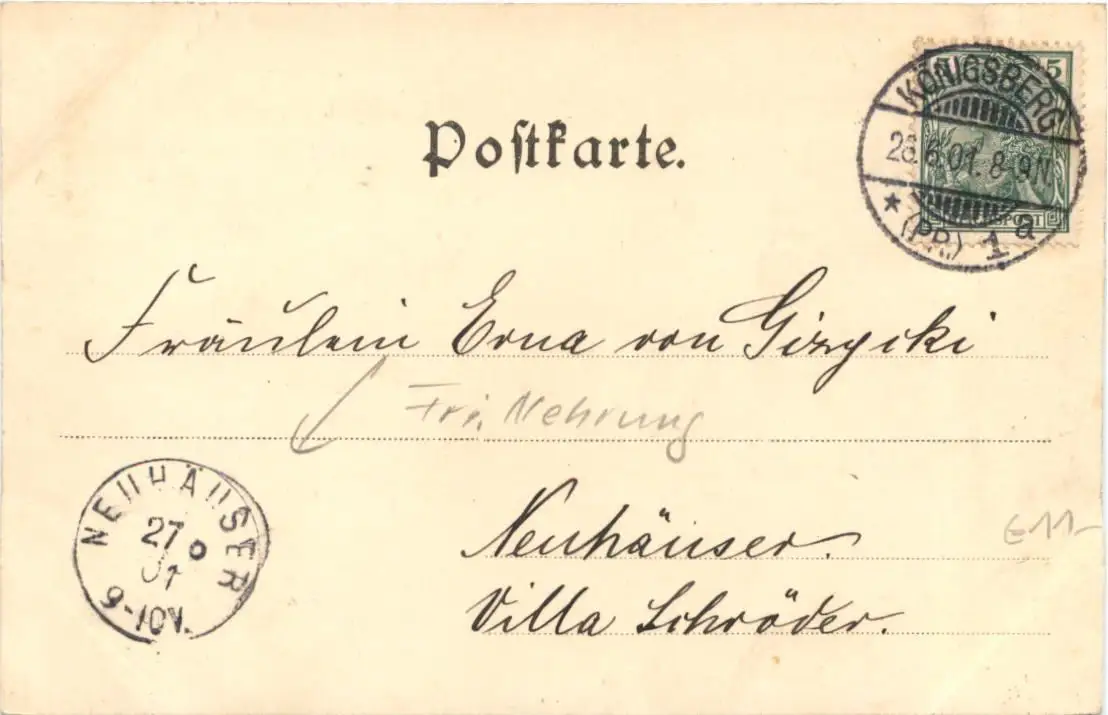 Postkarte.
5
KÖNIGSBERG
6.01. 8-9N.
★ (PR.) 1 a
Fräulein Erna von Gizycki
Nehrung
NEUHÄUSER
27
01
9-10V.
Neuhäuser.
Villa Schröder.
€11-